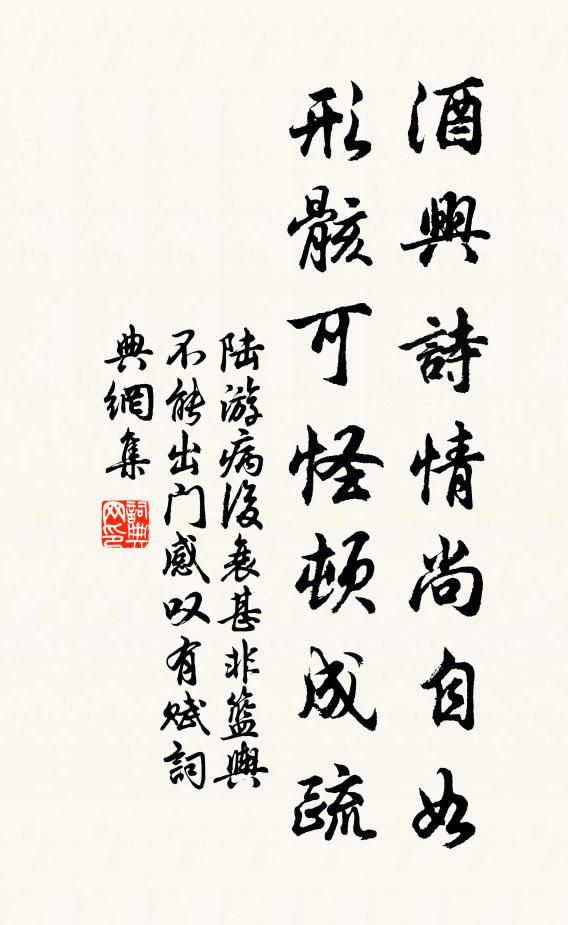 酒興詩情尚自如
形骸可怪頓成疏
陆游病後衰甚非籃輿
不能出门感叹有赋詞
典網集
詞典
网印